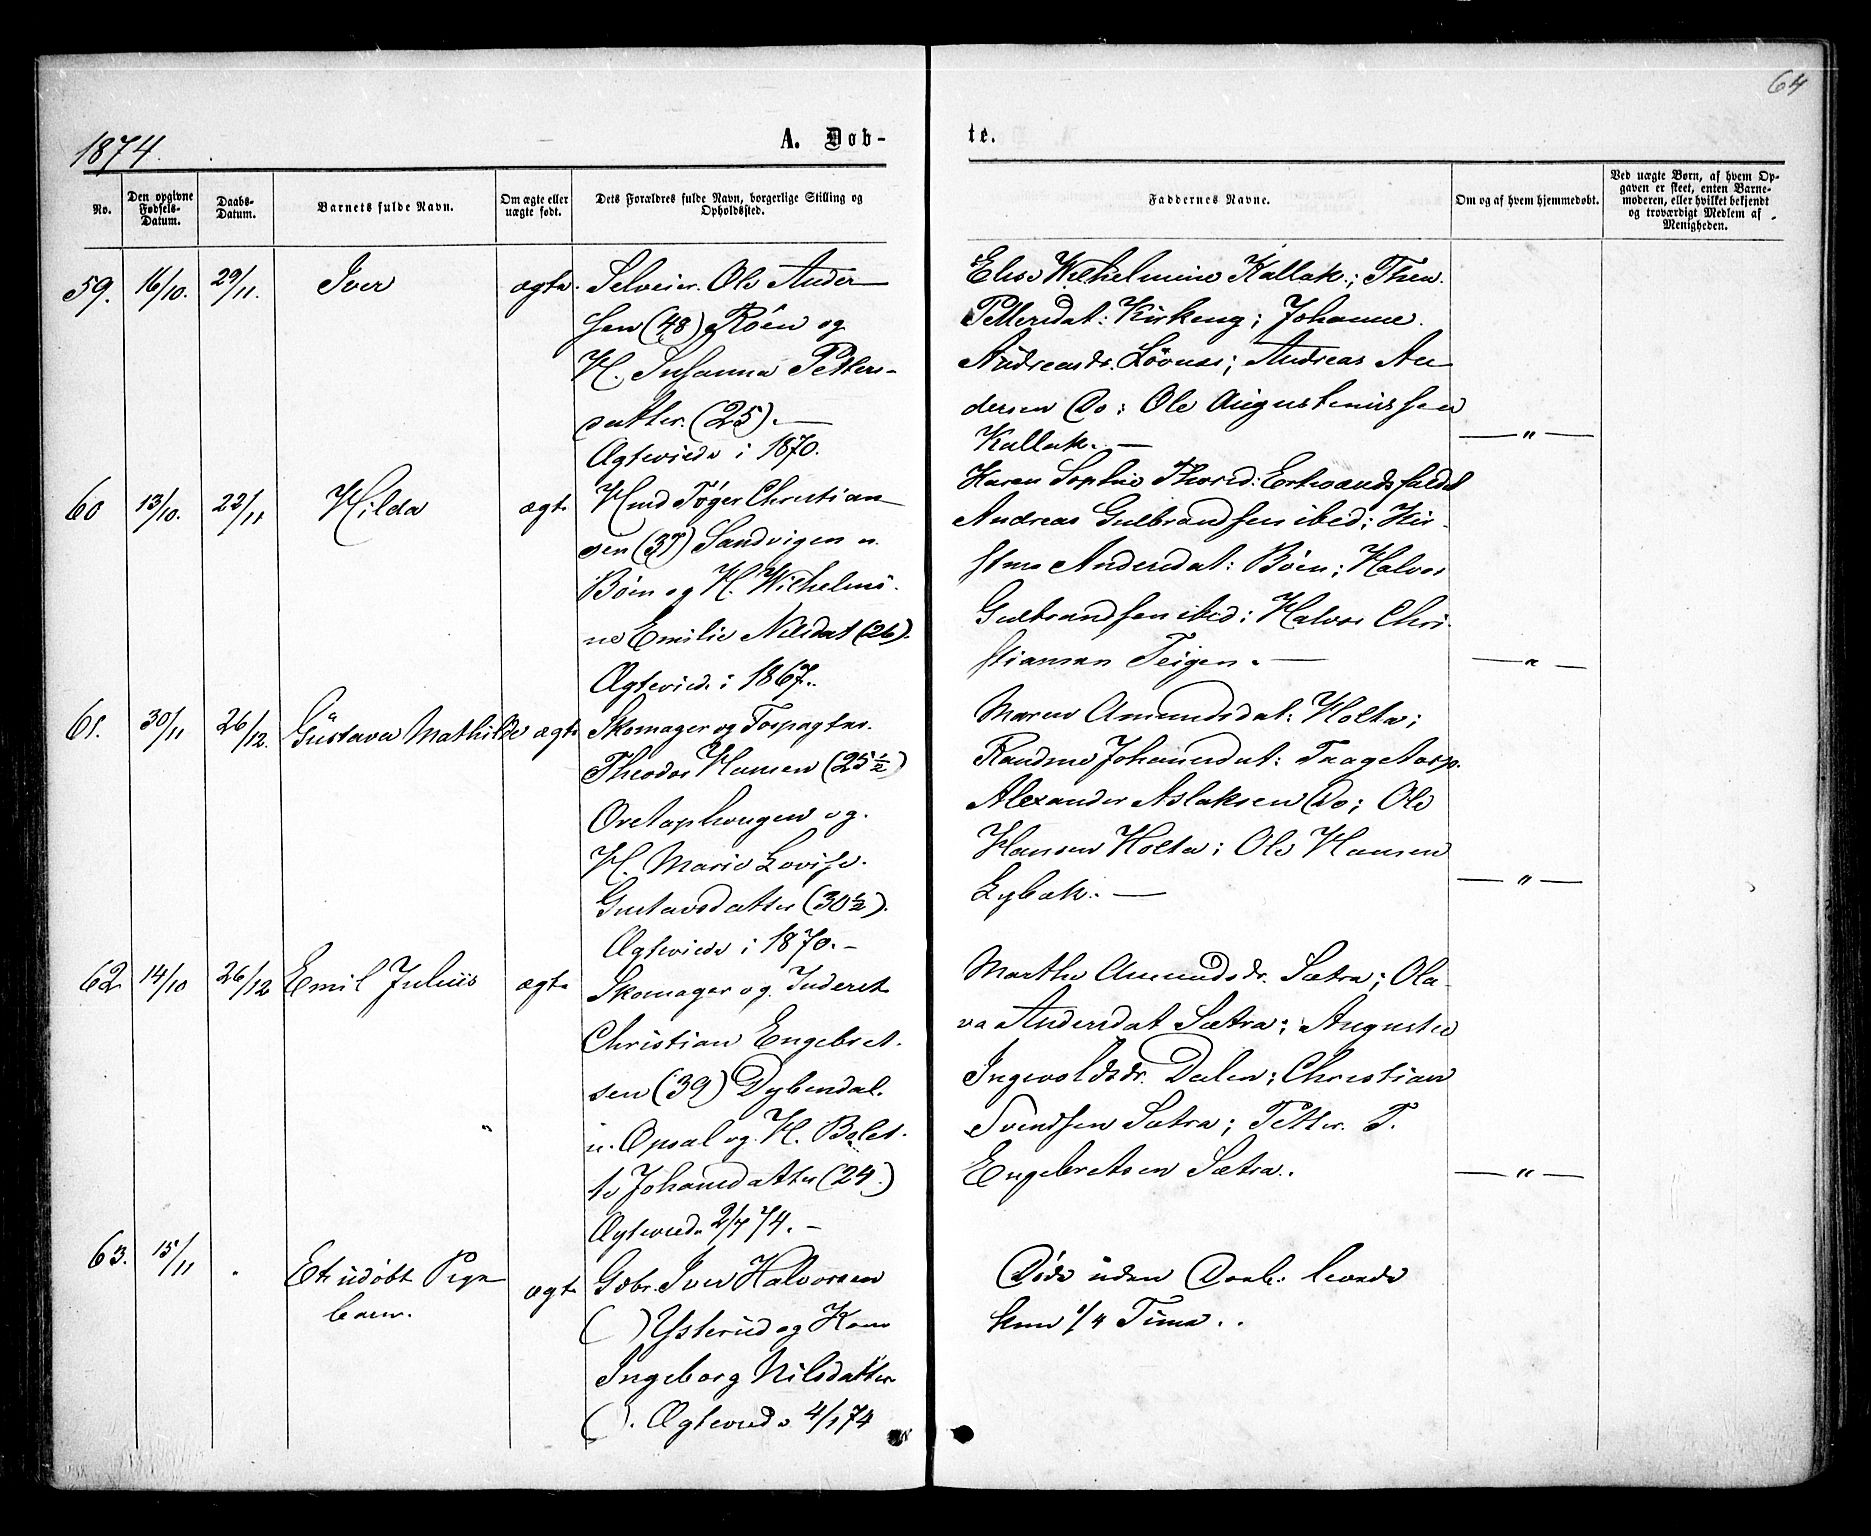 64
1874.
A. Døb-
te.
No.
Den opgivne Fødsels-Datum.
Daabs-Datum.
Barnets fulde Navn.
Om ægte eller uægte født.
Dets Forældres fulde Navn, borgerlige Stilling og Opholdssted.
Faddernes Navne.
Om og af hvem hjemmedøbt.
Ved uægte Børn, af hvem Op-
gaven er skeet, enten Barne-
moderen, eller hvilket bekjendt
og troværdigt Medlem af
Menigheden.
59. 16/10. 29/11. Iver ægte. Selveier. Ole Ander
sen (48) Röen og
H. Susanna Petters-
datter. (25). —
Ægteviede i 1870.
Elise Wilhelmine Kallak.; Theo.
Pettersdat: Kirkeng; Johanne.
Andreasdr. Lövnæs; Andreas An
dersen Do; Ole Augustinussen
Kallak. —
— " —
60 13/10. 22/11 Hilda ægte Hmd Töger Christian
sen (37) Sandvigen u.
Böen og H. Wilhelmi-
ne Emilie Nilsdat (26).
Ægtevied. i 1867.
Karen Sophie Thorsd:
Andreas Gulbrandsen ibid; Kir-
stine Andersdat: Böen; Halvor
Gulbrandsen ibid; Halvor Chri-
stiansen Teigen. —
— " —
61. 30/11 26/12. Gustava Mathilde ægte Skomager og Forpagter.
Theodor Hansen (25 1/2)
og.
H. Marie Lovise.
Gustavsdatter (30 1/2).
Ægteviede i 1870. -
Maren Amundsdat: Holta;
Randine Johannesdat: Tragetorp.
Alexander Aslaksen Do; Ole
Hansen Holta; Ole Hansen
Lybæk. —
— " —
62 14/10 26/12 Emil Julius ægte Skomager og Inderst
Christian Engebret-
sen (39) Dybendal.
u. Opsal og H. Bolet-
te Johansdatter (24)
Ægtevied. 2/7 74. -
Marthe Amundsdr. Sætra; Ola-
va Andersdat Sætra; Auguste
Ingevoldsdr. Dalen; Christian
Svendsen Sætra; Petter. T.
Engebretsen Sætra.
— " —
63. 15/11 " Et udöbt Pige
barn. ægte Gbr. Iver Halvorsen
( ) Ysterud og Kone
Ingeborg Nilsdatter
( ). Ægteviede 4/1 74
Döde uden Daab: levede
kun 1/4 Time.